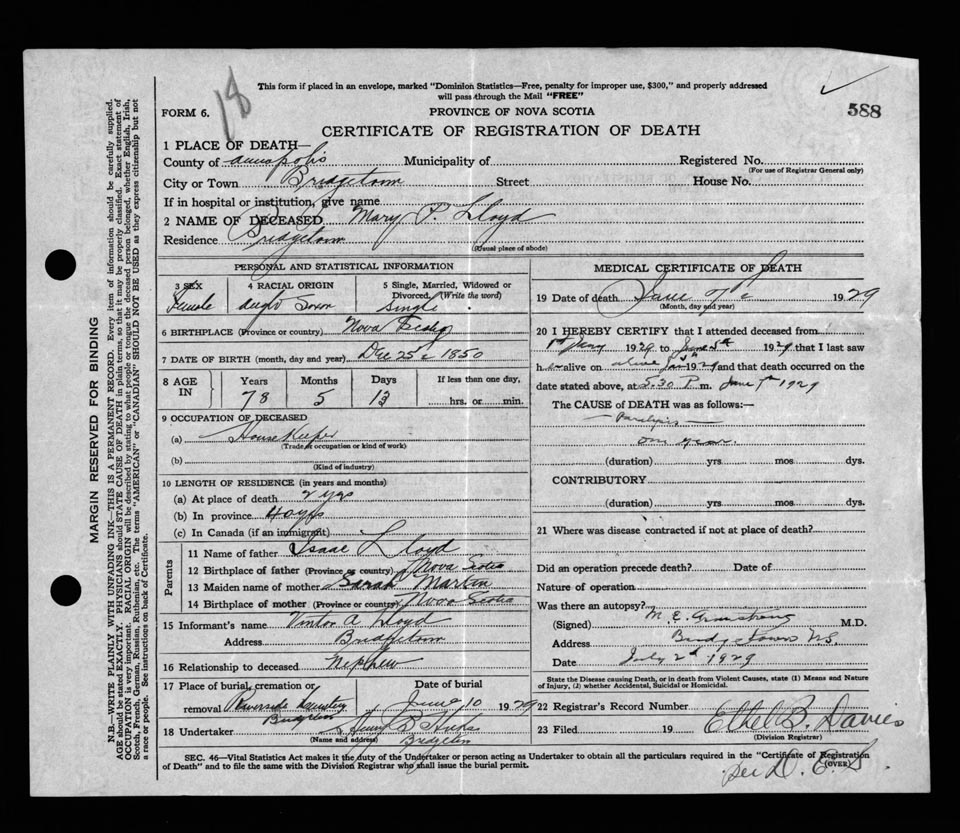 18
This form if placed in an envelope, marked "Dominion Statistics—Free, penalty for improper use, $300," and properly addressed
will pass through the Mail "FREE"
588
FORM 6.
PROVINCE OF NOVA SCOTIA
CERTIFICATE OF REGISTRATION OF DEATH
1 PLACE OF DEATH—
County of Annapolis Municipality of Registered No.
(For use of Registrar General only)
City or Town Bridgetown Street House No.
If in hospital or institution, give name
2 NAME OF DECEASED Mary P. Lloyd
Residence Bridgetown
(Usual place of abode)
PERSONAL AND STATISTICAL INFORMATION
3 SEX 4 RACIAL ORIGIN 5 Single, Married, Widowed or
Divorced. (Write the word)
Female Anglo Saxon Single
6 BIRTHPLACE (Province or country) Nova Scotia
7 DATE OF BIRTH (month, day and year) Dec 25 1850
8 AGE IN Years Months Days If less than one day,
78 5 13 hrs. or min.
9 OCCUPATION OF DECEASED
(a) House Keeper
(Trade, occupation or kind of work)
(b)
(Kind of industry)
10 LENGTH OF RESIDENCE (in years and months)
(a) At place of death 2 yrs
(b) In province 40 yrs
(c) In Canada (if an immigrant)
Parents
11 Name of father Isaac Lloyd
12 Birthplace of father (Province or country) Nova Scotia
13 Maiden name of mother Sarah Martin
14 Birthplace of mother (Province or country) Nova Scotia
15 Informant's name A Lloyd
Address Bridgetown
16 Relationship to deceased Nephew
17 Place of burial, cremation or Date of burial
removal Riverside Cemetery June 10 1929
Bridgetown
18 Undertaker B
(Name and address) Bridgetown
MEDICAL CERTIFICATE OF DEATH
19 Date of death June 7 1929
(Month, day and year)
20 I HEREBY CERTIFY that I attended deceased from
1st May 1929 to June 5th 1929 that I last saw
h alive on 1929 and that death occurred on the
date stated above, at 5.30 P. m. June 7th 1929
The CAUSE OF DEATH was as follows:—
Paralysis
one year.
(duration) yrs mos dys.
CONTRIBUTORY
(duration) yrs. mos. dys.
21 Where was disease contracted if not at place of death?
Did an operation precede death? Date of
Nature of operation
Was there an autopsy?
(Signed) M. E. Armstrong M.D.
Address Bridgetown N.S.
Date July 2d 1929
State the Disease causing Death, or in death from Violent Causes, state (1) Means and Nature
of Injury, (2) whether Accidental, Suicidal or Homicidal.
22 Registrar's Record Number
23 Filed 19 Ethel B. Davies
(Division Registrar)
SEC. 46—Vital Statistics Act makes it the duty of the Undertaker or person acting as Undertaker to obtain all the particulars required in the "Certificate of Registration
of Death" and to file the same with the Division Registrar who shall issue the burial permit.
(OVER)
per D.
MARGIN RESERVED FOR BINDING
N.B.—WRITE PLAINLY WITH UNFADING INK—THIS IS A PERMANENT RECORD. Every item of information should be carefully supplied.
AGE should be stated EXACTLY. PHYSICIANS should STATE CAUSE OF DEATH in plain terms, so that it may be properly classified. Exact statement of
OCCUPATION is very important. RACIAL ORIGIN will be described by stating to what people or tongue the deceased person belonged, whether English, Irish,
Scotch, French, German, Russian, Ruthenian, etc. The terms "AMERICAN" or "CANADIAN" SHOULD NOT BE USED as they express citizenship but not
a race or people. See instructions on back of Certificate.